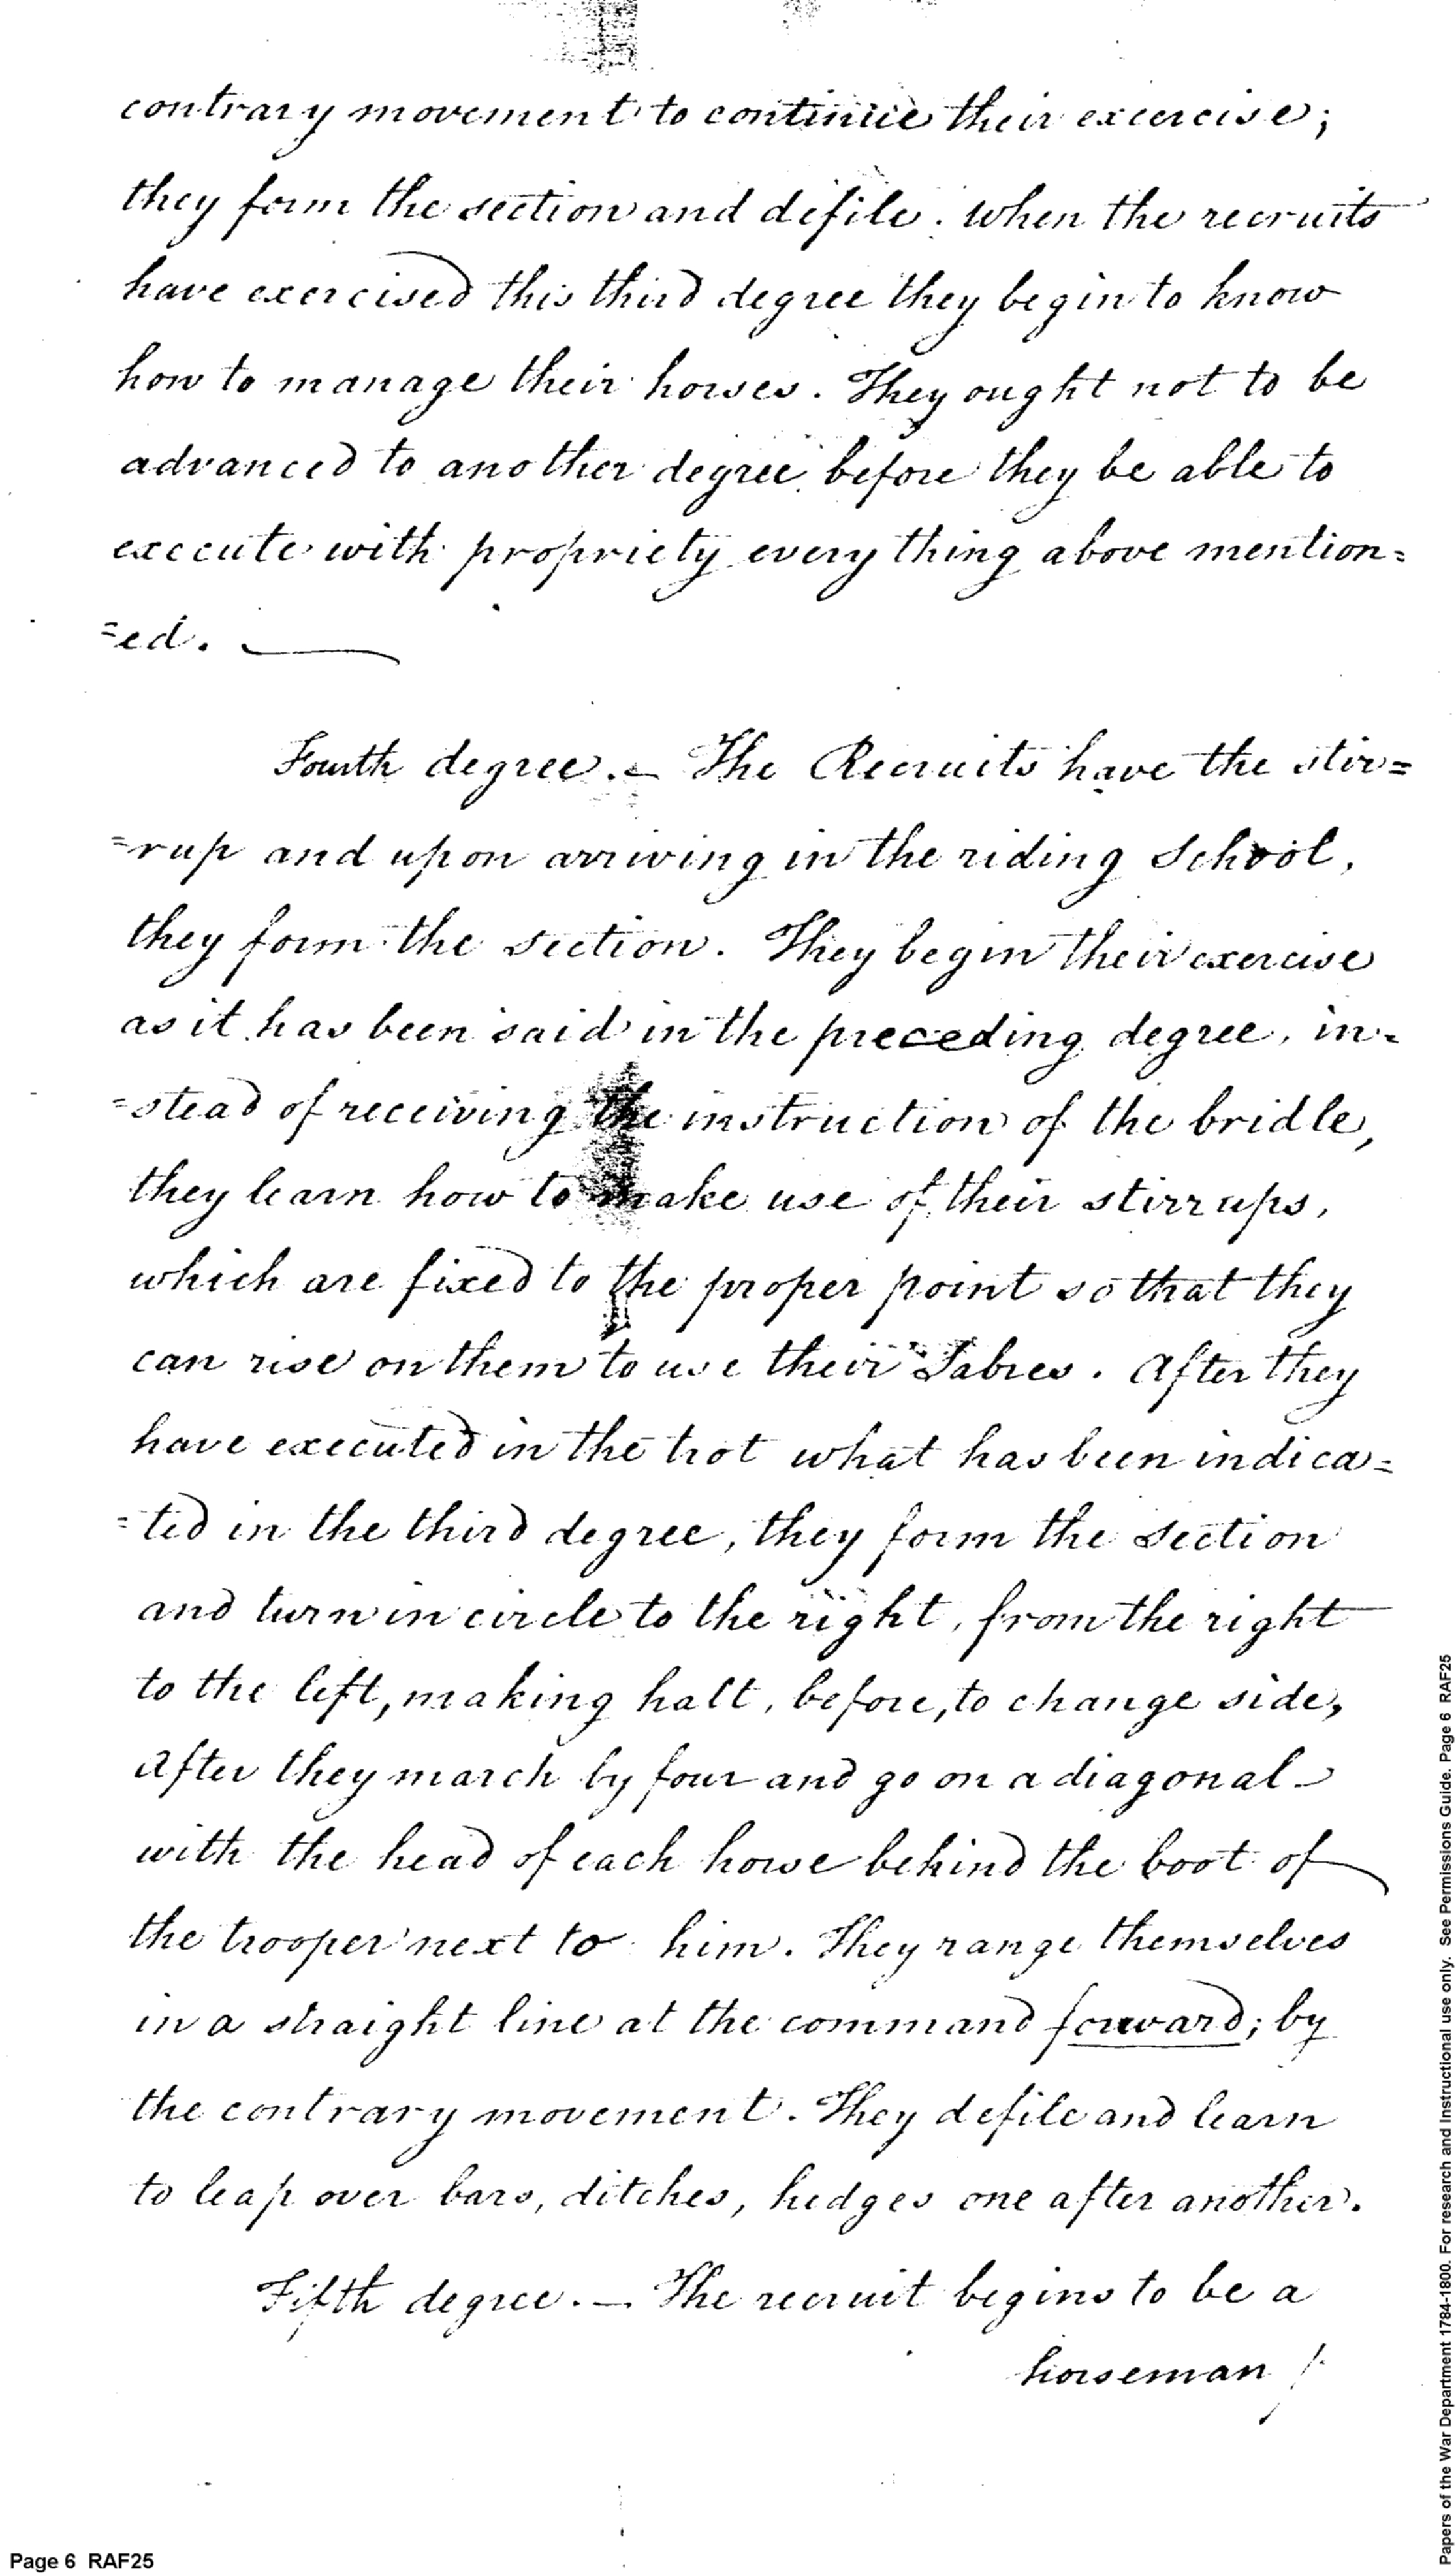 contrary movement to continue their excercise;
they form the section and defile. When the recruits
have exercised this third degree they begin to know
how to manage their horses. They ought not to be
advanced to another degree before they be able to
execute with propriety every thing above mention=
=ed. —
Fourth degree. — The Recruits have the stir=
=rup and upon arriving in the riding School,
they form the section. They begin their exercise
as it has been said in the preceding degree, in=
=stead of receiving the instruction of the bridle,
they learn how to make use of their stirrups,
which are fixed to the proper point so that they
can rise on them to use their Sabres. After they
have executed in the trot what has been indica=
=ted in the third degree, they form the Section
and turn in circle to the right, from the right
to the left, making halt, before, to change side,
After they march by four and go on a diagonal
with the head of each horse behind the boot of
the trooper next to him. They range themselves
in a straight line at the command forward; by
the contrary movement. They defile and learn
to leap over bars, ditches, hedges one after another.
Fifth degree. — The recruit begins to be a
horseman /.
Page 6 RAF25
Papers of the War Department 1784-1800. For research and Instructional use only. See Permissions Guide. Page 6 RAF25